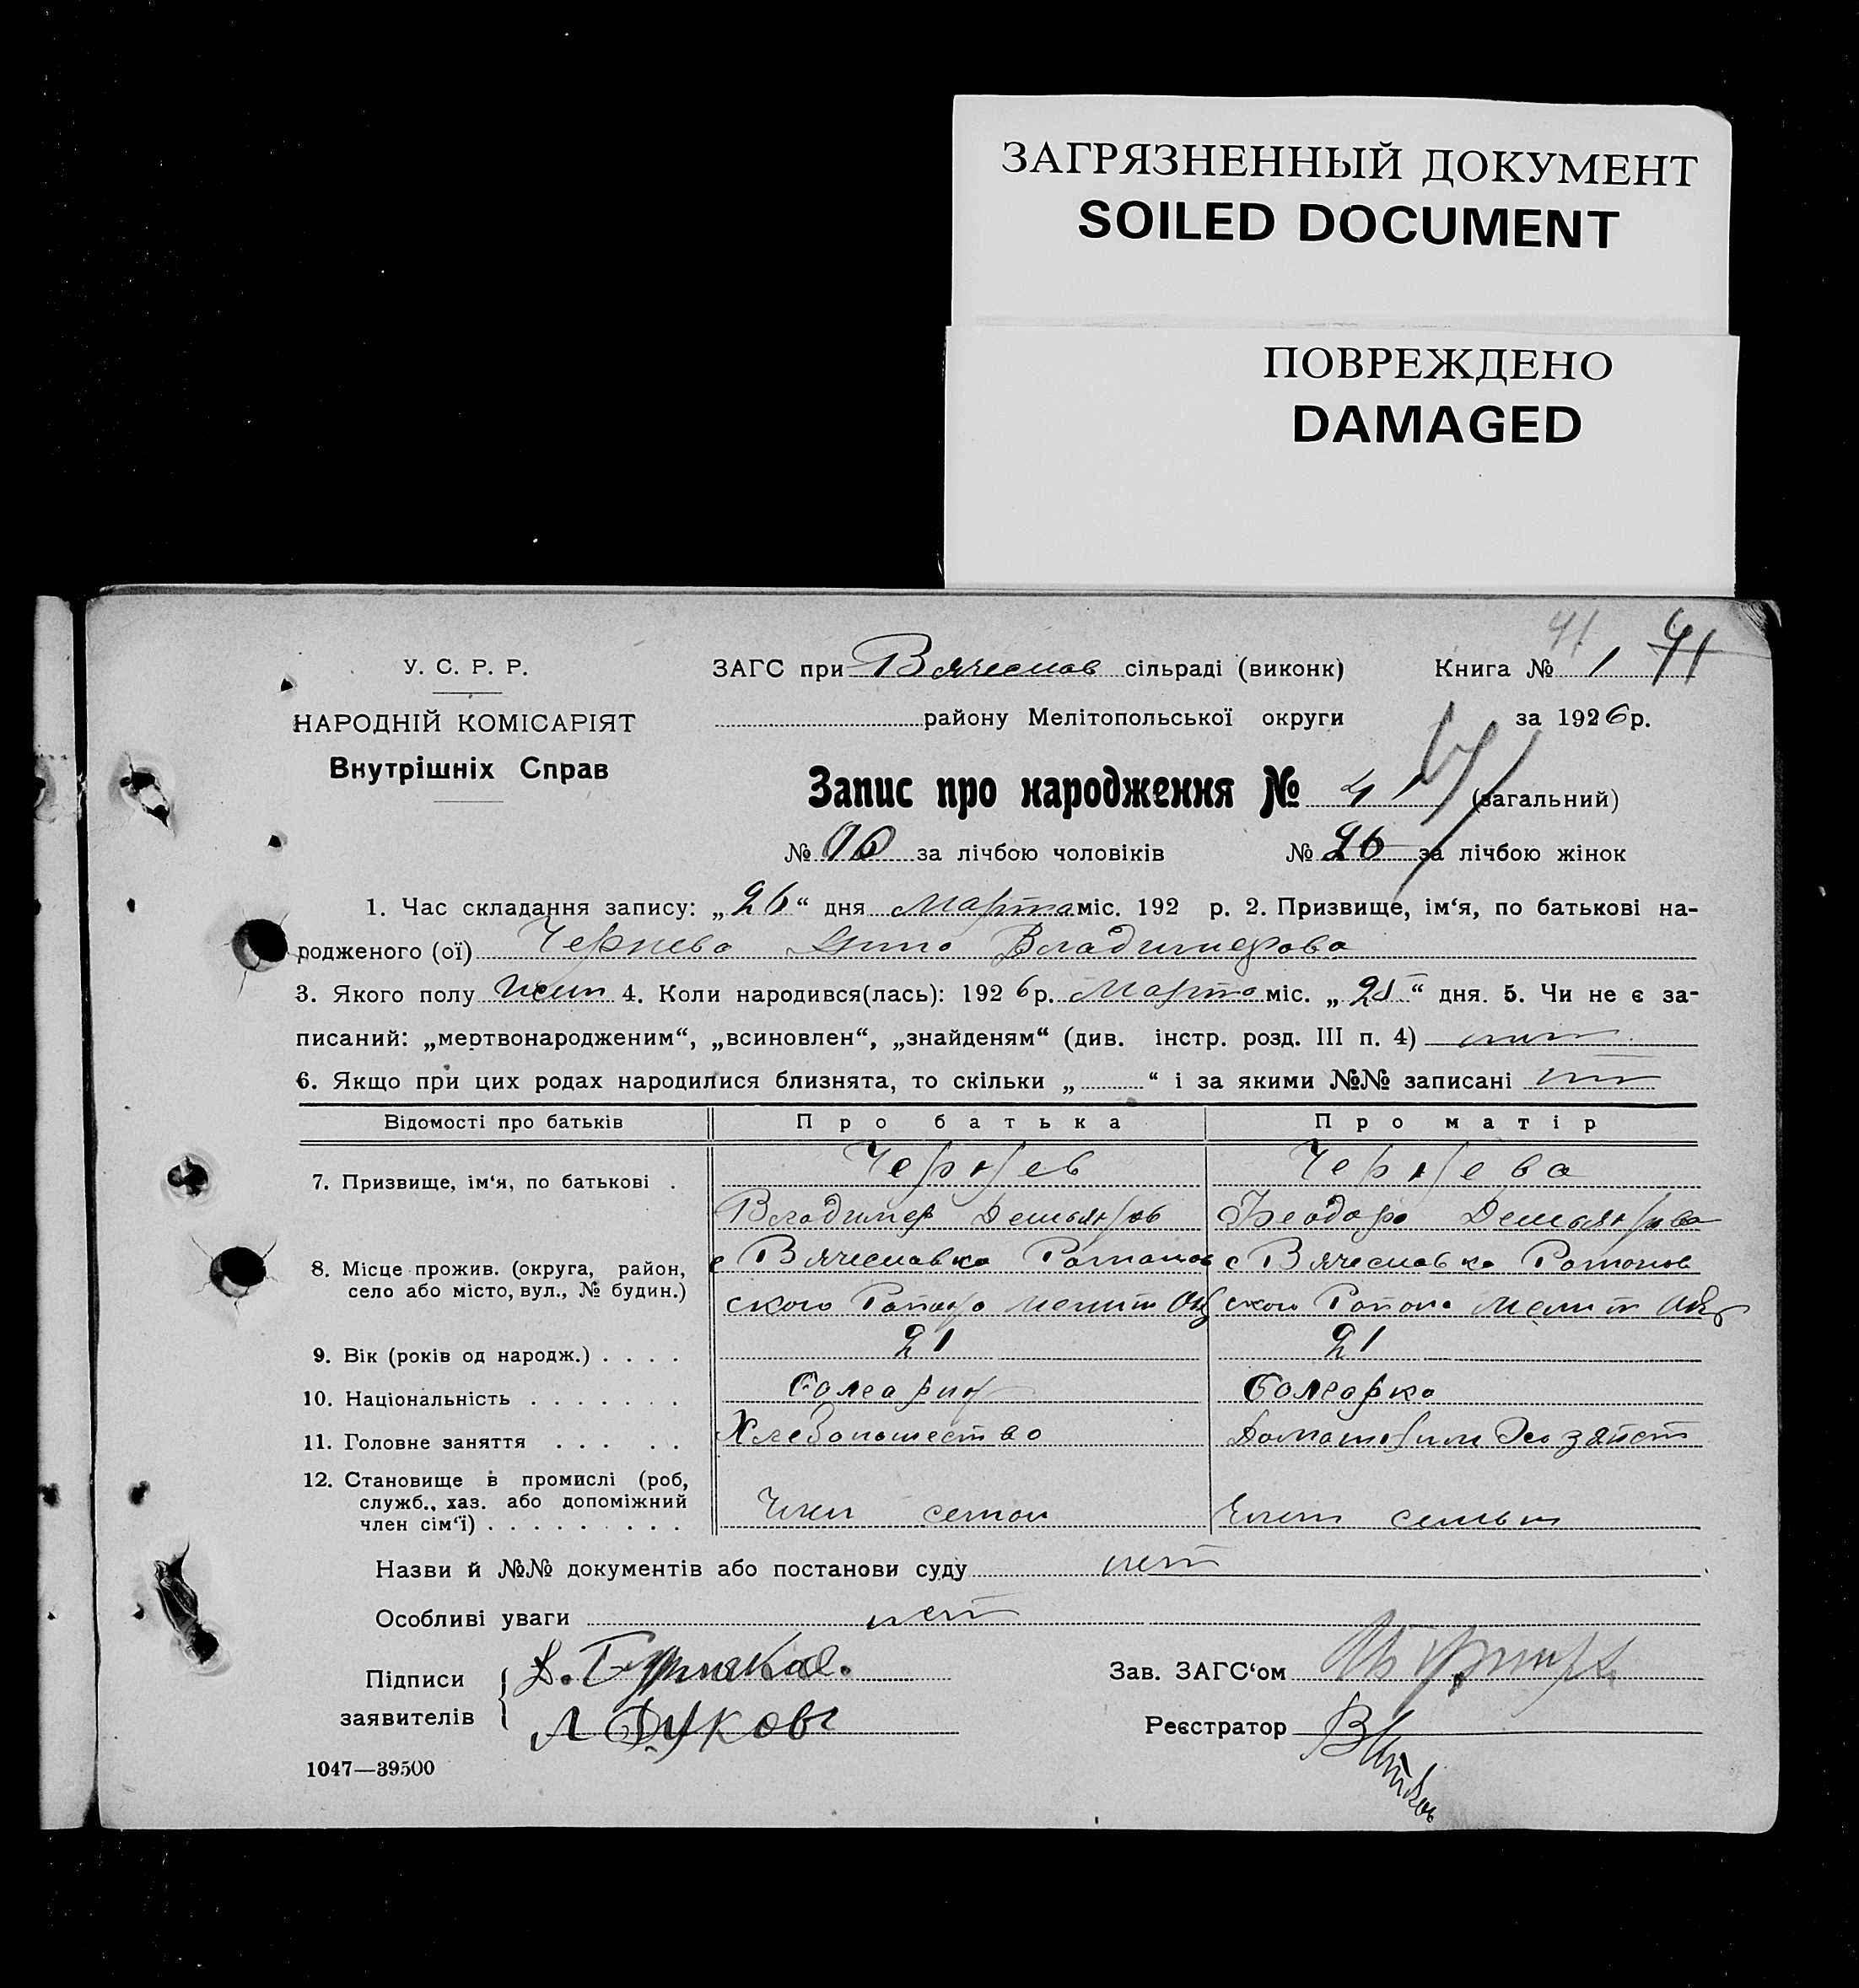 ЗАГРЯЗНЕННЫЙ ДОКУМЕНТ
SOILED DOCUMENT
ПОВРЕЖДЕНО
DAMAGED
41 41
У. С. Р. Р.
НАРОДНІЙ КОМІСАРІЯТ
Внутрішніх Справ
ЗАГС при Вячеслов сільраді (виконк) Книга № 1
району Мелітопольської округи за 1926 р.
Запис про народження № 41 (загальний)
№ за лічбою чоловіків № 26 за лічбою жінок
1. Час складання запису: „26“ дня Марта міс. 192 р. 2. Призвище, ім‘я, по батькові на-
родженого (ої) Чернева Владимерова
3. Якого полу жен 4. Коли народився(лась): 1926 р. Марта міс. „ “ дня. 5. Чи не є за-
писаний: „мертвонародженим“, „всиновлен“, „знайденям“ (див. інстр. розд. III п. 4) нит
6. Якщо при цих родах народилися близнята, то скільки „ “ і за якими №№ записані
Відомості про батьків Про батька Про матір
7. Призвище, ім‘я, по батькові . Чернев Чернева
Владимер Демьянов Феодора Демьянова
8. Місце прожив. (округа, район, с Вячеславка Романов с Вячеславка Романов
село або місто, вул., № будин.) ского Мелит Окр ского Мелит Окр
9. Вік (років од народж.) . . . . 21 21
10. Національність . . . . . . . болгарин болгарка
11. Головне заняття . . . . . Хлебопашество Домашним Хозяйст
12. Становище в промислі (роб,
служб., хаз. або допоміжний
член сім‘ї) . . . . . . . . . Член семьи Член семьи
Назви й №№ документів або постанови суду нет
Особливі уваги нет
Підписи
заявителів
Л Дуковъ
Зав. ЗАГС‘ом
Реєстратор
1047—39500